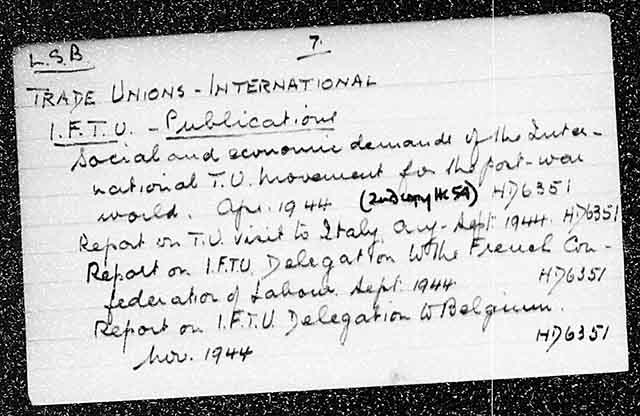 L.S.B. 7.
TRADE UNIONS - INTERNATIONAL
I.F.T.U. - Publications
Social and economic demands of the Inter-
national T.U. Movement for the post-war
world. Apr. 1944 (2nd copy HC 59) HD6351
Report on T.U. visit to Italy, Aug-Sept. 1944. HD6351
Report on I.F.T.U. Delegation to the French Con-
federation of Labour. Sept. 1944 HD6351
Report on I.F.T.U. Delegation to Belgium.
Nov. 1944 HD6351